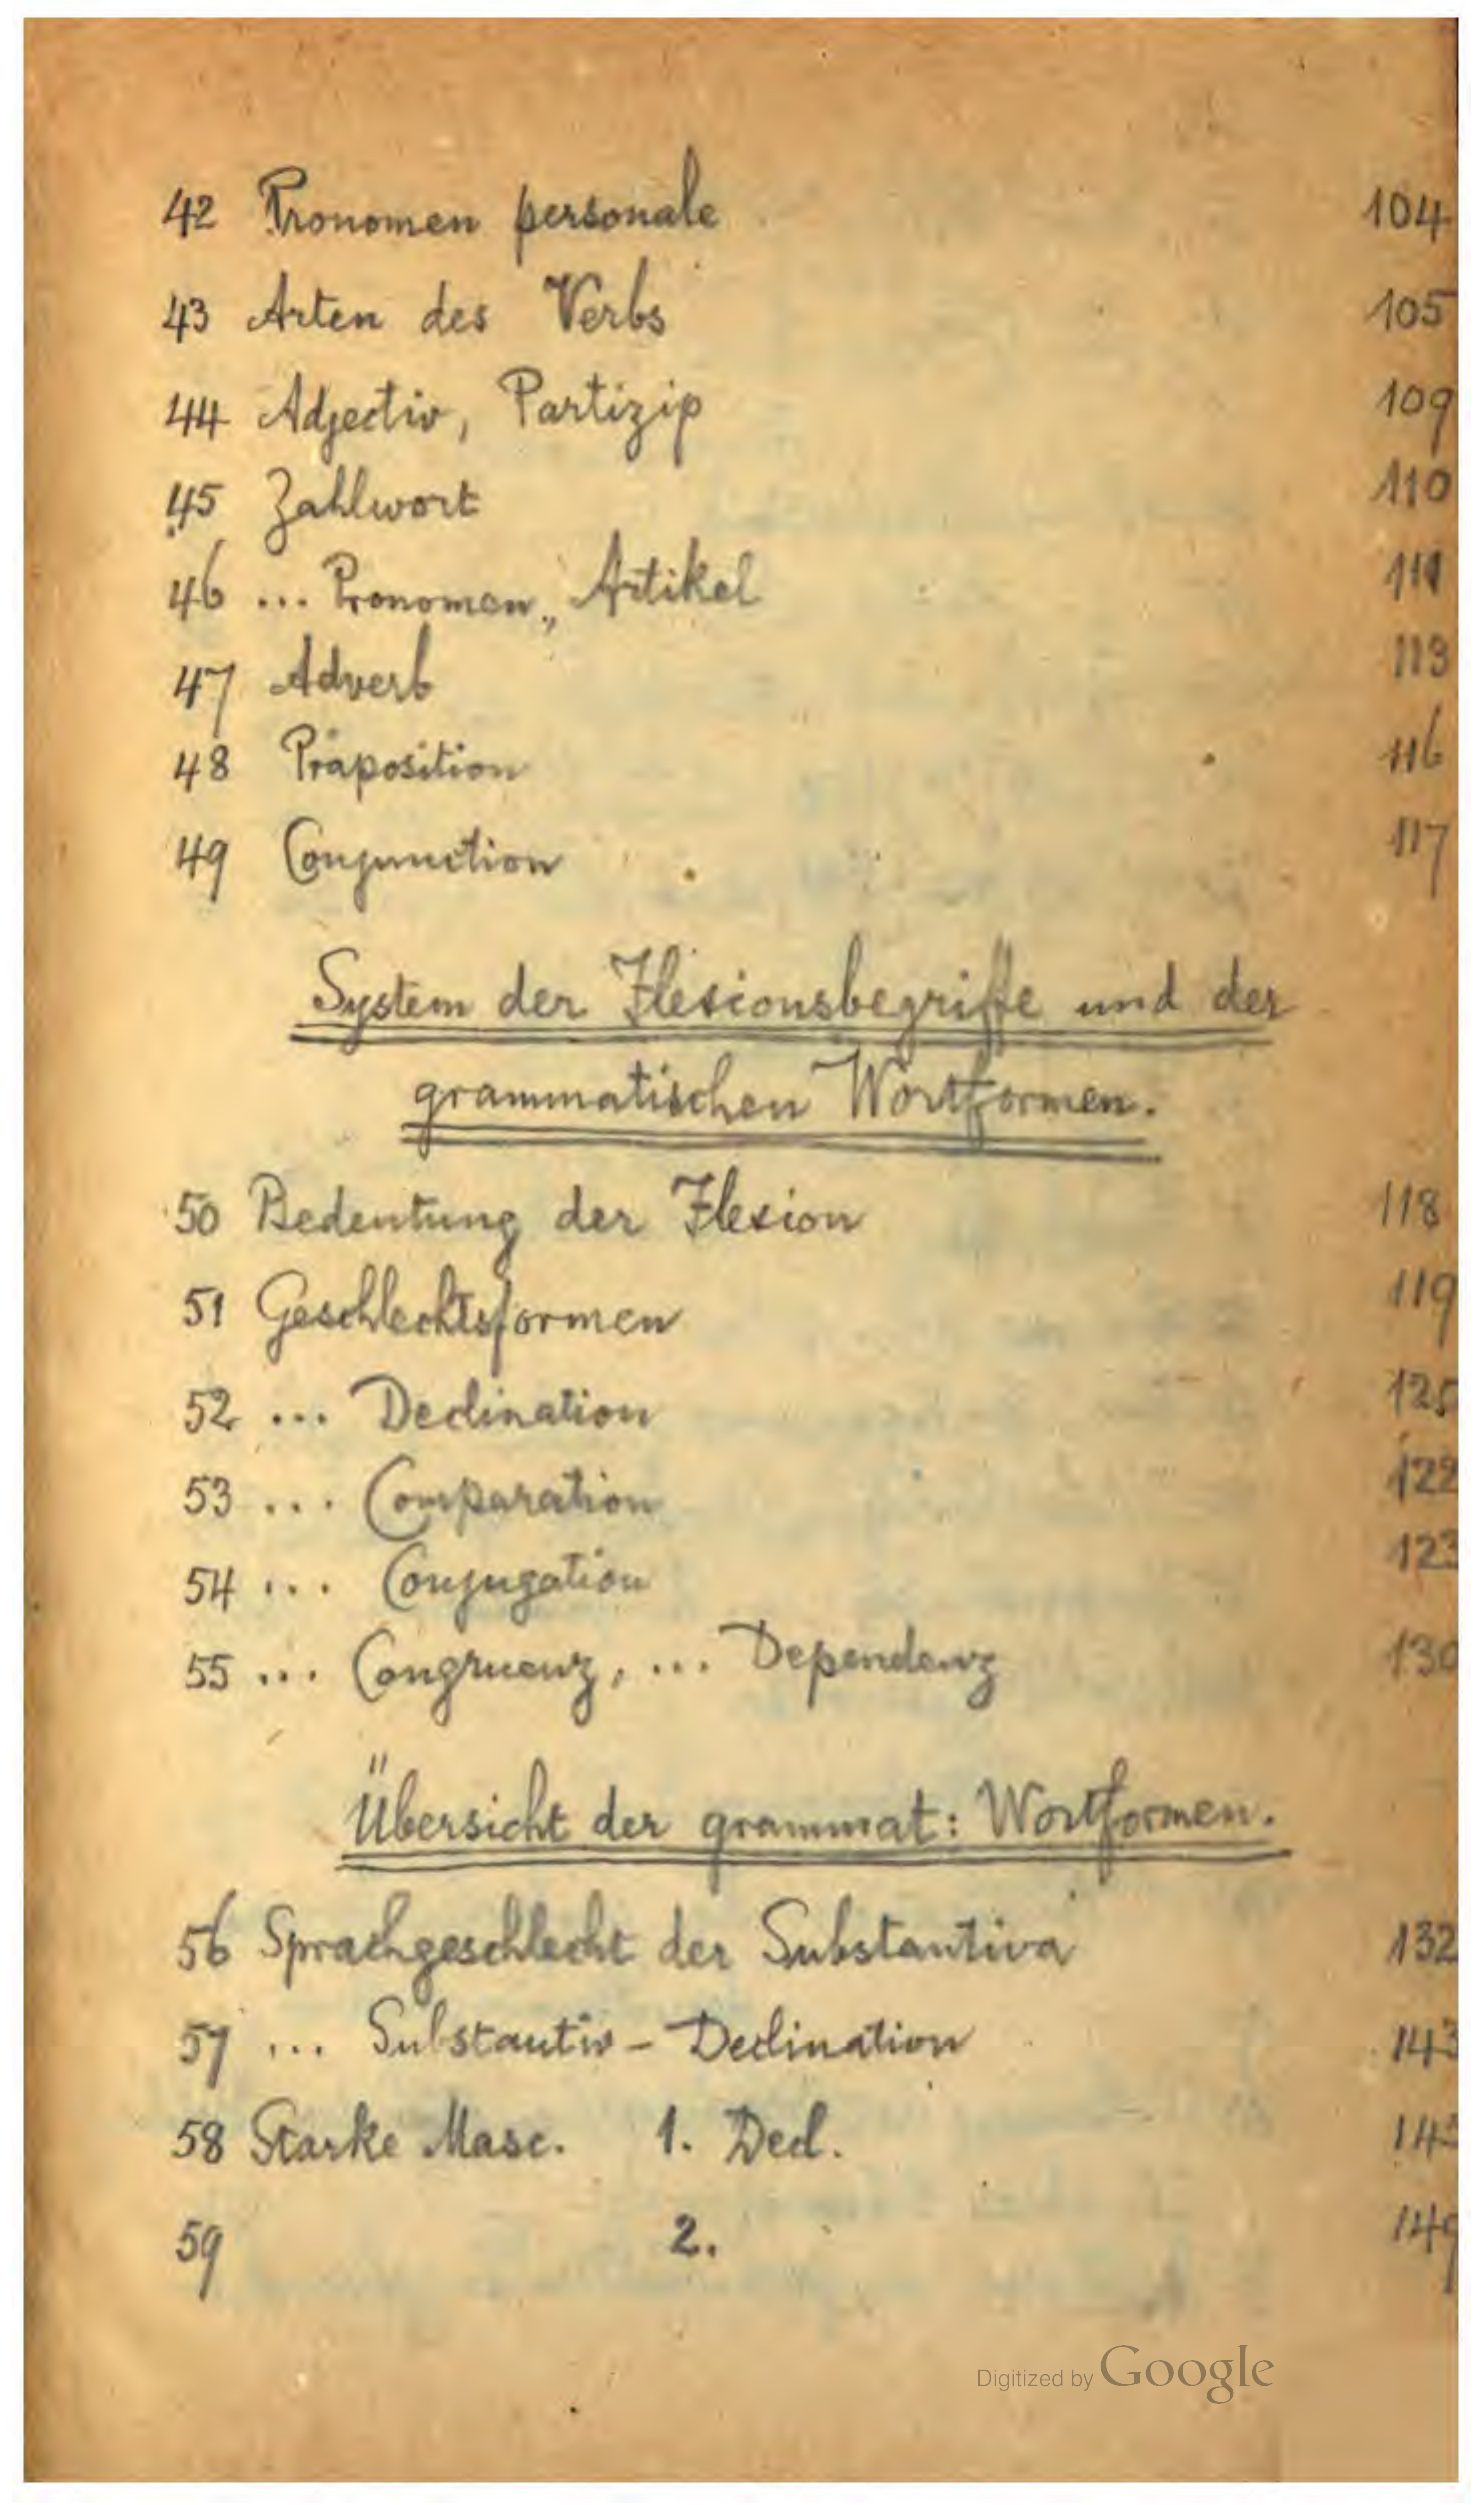 42 Pronomen personale 104
43 Arten des Verbs 105
44 Adjectiv, Partizip 109
45 Zahlwort 110
46 ... Pronomen,, Artikel 111
47 Adverb 113
48 Präposition 116
49 Conjunction 117
System der Flexionsbegriffe und der
grammatischen Wortformen.
50 Bedeutung der Flexion 118
51 Geschlechtsformen 119
52 ... Declination 125
53 ... Comparation 122
54 ... Conjugation 123
55 ... Congruenz, ... Dependenz 130
Übersicht der grammat: Wortformen.
56 Sprachgeschlecht der Substantiva 132
57 ... Substantiv - Declination 143
58 Starke Masc. 1. Decl.
59 2. 149
Digitized by Google